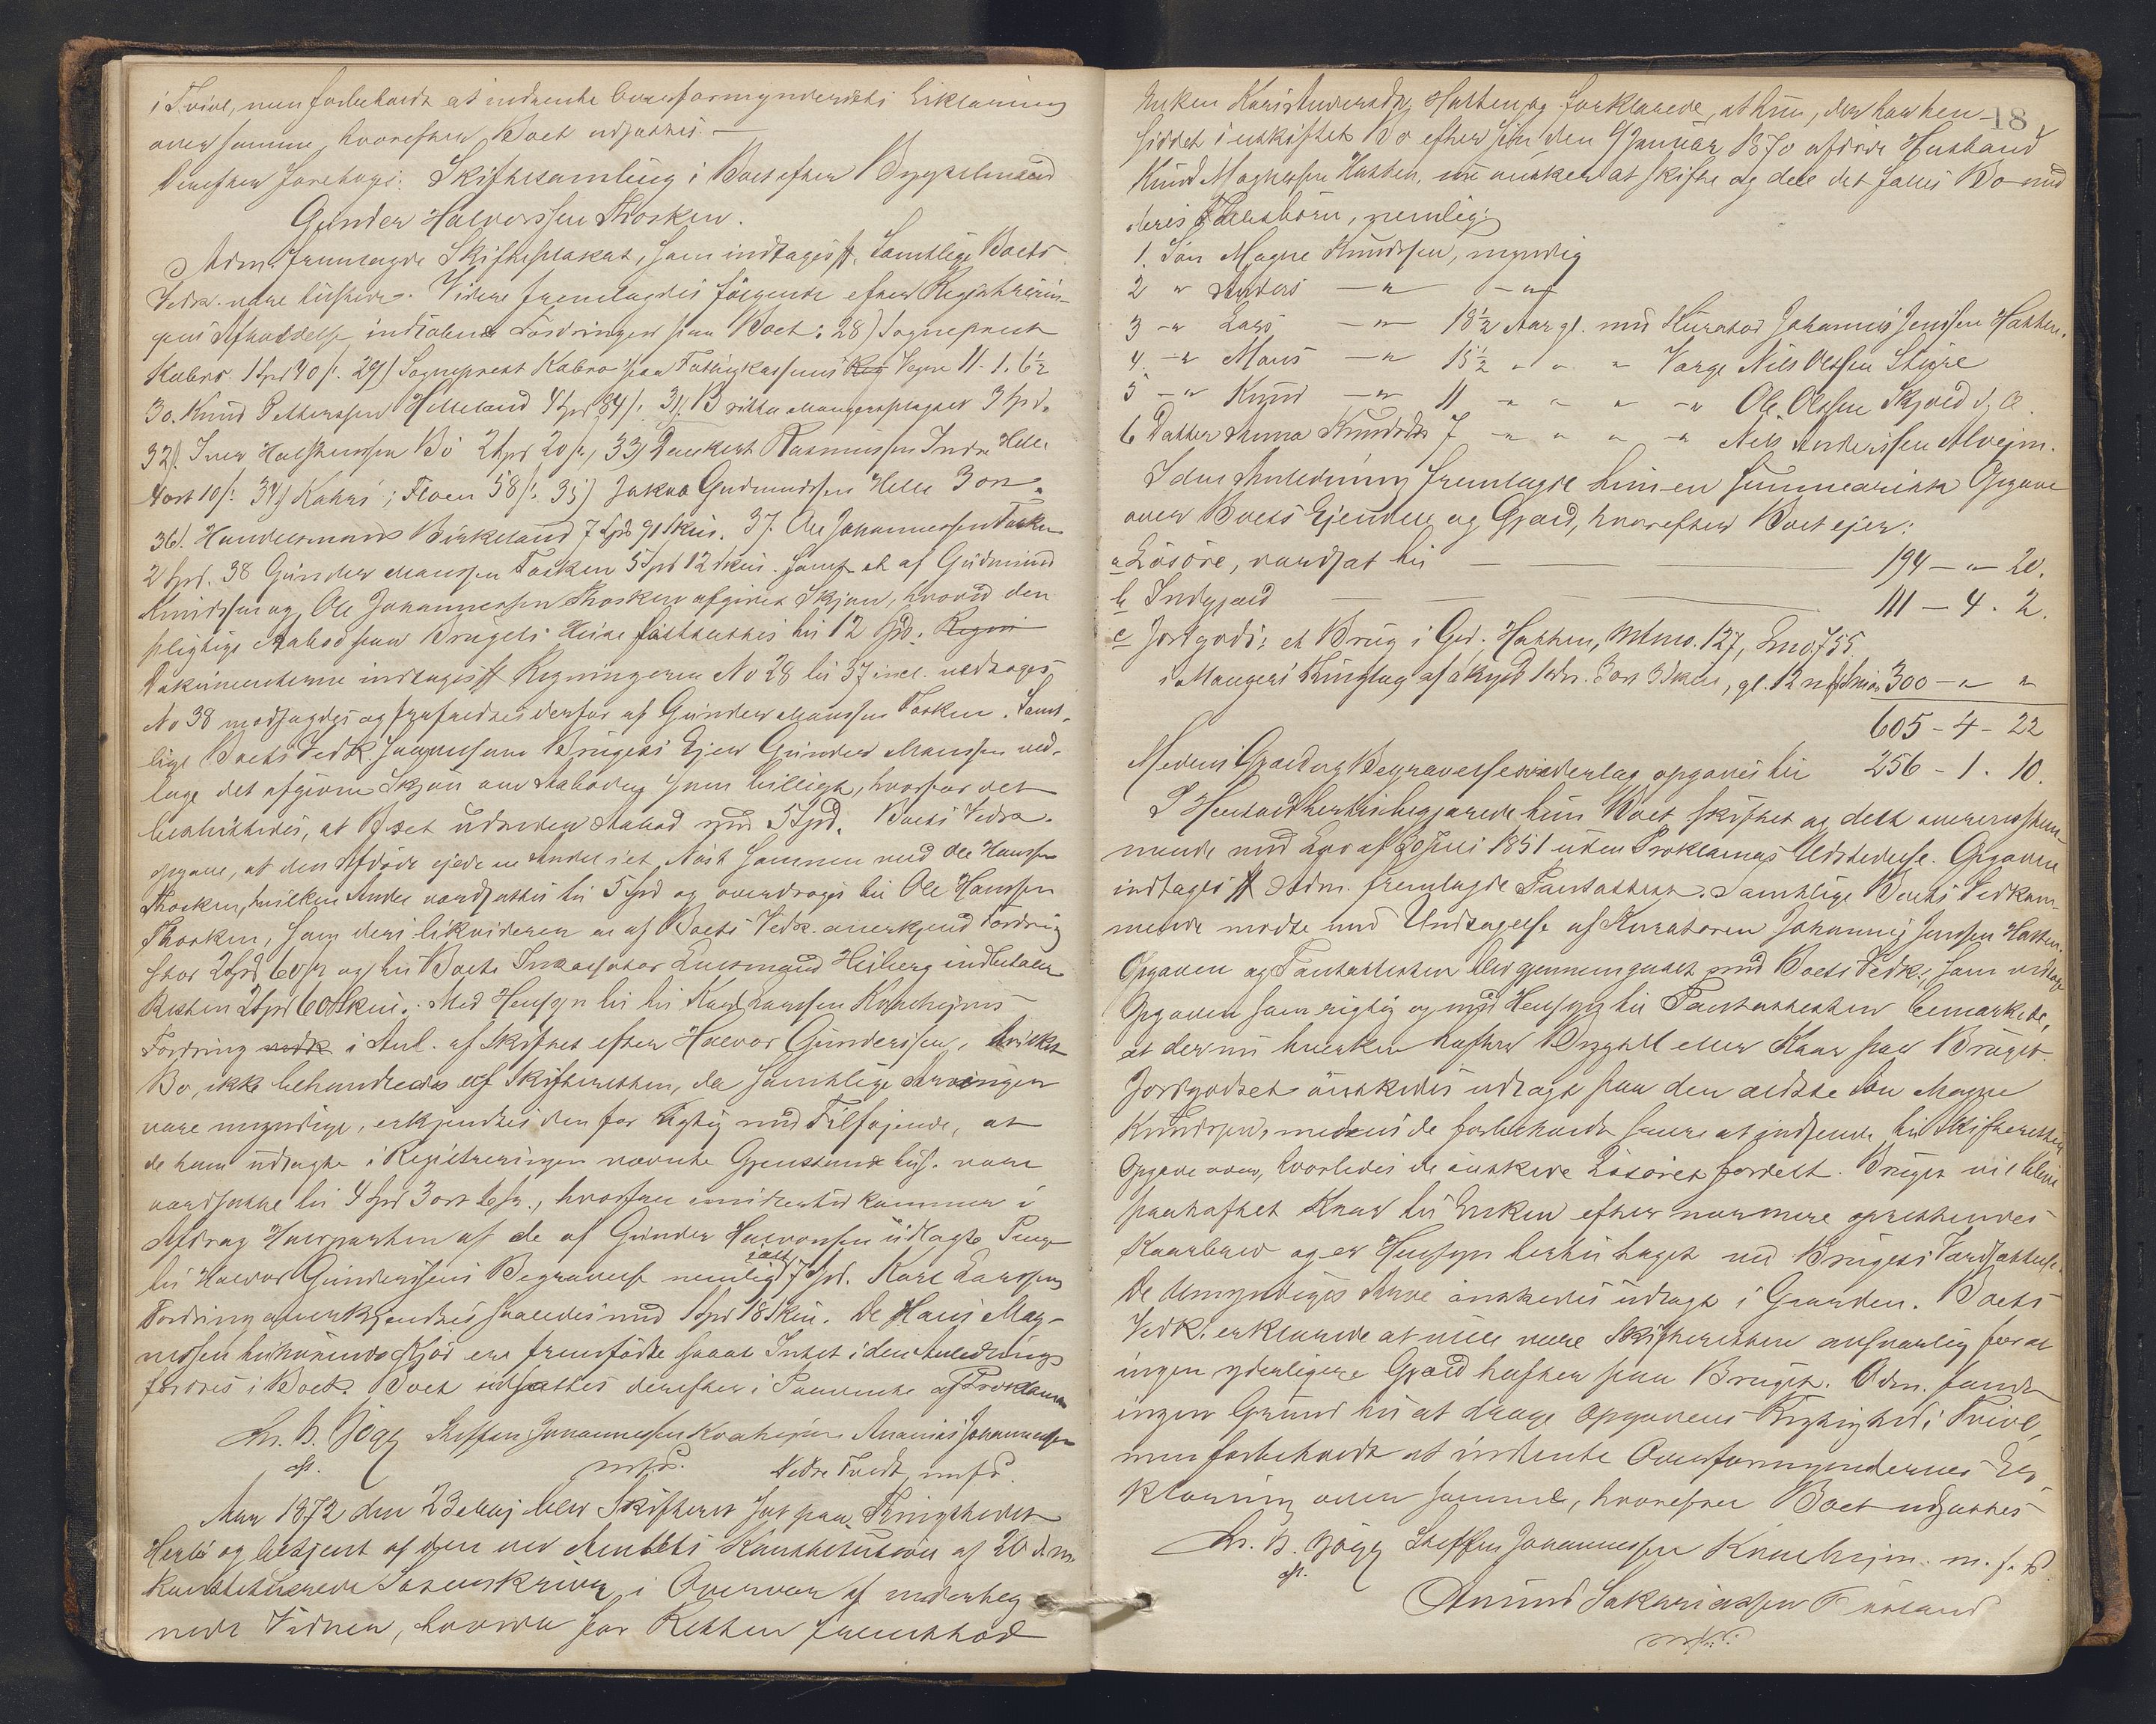 i Tvivl, men forbeholdt at indhente Overformynderiets Erklæring
over samme, hvorefter Boet udsattes. —
Derefter foretoges: Skiftesamling i Boet efter
Gunder Halvorssen Thosken.
Adm. fremlagde Skifteplakat, som indtages #. Samtlige Boets
Vedk. vare tilstede. Videre fremlagdes følgende efter Registrerin-
gens Afholdelse indkomne Fordringer paa Boet: 28) Sogneprest
Kabro 1 Spd 40 s. 29) Sogneprest Kabro paa Fattigkassens Vegne 11. 1. 6½
30. Knud Pettersen Helleland 4 Spd 84 s. 31) Britha Mangersplagset 3 Spd.
32). Iver Halstenssen Bö 2 Spd 20 s., 33) Rasmussen Indre Helle
4 ort 10 s. 34) Floen 58 s. 35) Jakob Gudmundssen Helle 3 ort.
36). Handelsmand Birkeland 7 Spd 91 Skill. 37. Ole Johannessen Tosken
2 Spd. 38 Gunder Manssen Tosken 5 Spd 12 skill. samt et af Gudmund
Knudssen og Ole Johannessen Thosken afgivet Skjøn, hvorved den
pligtige Aabod paa Brugets Huse fastsattes til 12 Spd.
Dokumenterne indtages # Regningerne No 28 til 37 incl. vedtages
No 38 modsagdes og frafaldtes derfor af Gunder Manssen Tosken. Samt-
lige Boets Vedk. saavelsom Brugets Ejer Gunder Manssen ved-
toge det afgivne Skjøn over Aaboden som billigt, hvorfor det
besluttedes, at Boet udreder Aabod med 5 Spd. Boets Vedk.
opgave, at den Afdøde ejede en Andel i et Nöst sammen med Ole Hanssen
Thosken, hvilken Andel værdsattes til 5 Spd og overdroges til Ole Hanssen
Thosken, som deri likviderer en af Boets Vedk. anerkjend Fordring
stor 2 Spd 60 s og til Boets Inkassator Lensmand Heiberg indbetaler
Resten 2 Spd 60 Skill. Med Hensyn til Karl Larssen
Fordring i Anl. af Skiftet efter Halvor Gunderssen, hvilket
Bo, ikke behandledes af Skifteretten, da samtlige Arvinger
vare myndige, erkjendtes den for rigtig med Tilføjende, at
de ham udlagte i Registreringen nævnte Gjenstande vare
værdsatte til 4 Spd 3 ort 6 s., hvorfra imidlertid kommer i
Afdrag Halvparten af de af Gunder Halvorssen udlagte Penge
til Halvor Gunderssens Begravelse nemlig ialt 7 Spd. Karl Larssens
Fordring anerkjendtes saaledes med 1 Spd 18 Skill. De Hans Mag-
nessen tilhørende ere fremførte saaat Intet i den Anledning
fordres i Boet. Boet udsattes derefter i Paavente af Proklama
Chr. B. Bögh Steffen Johannessen Ananias Johannessen
cst. m.f.P. Nedre Tvedt, m.f.P.
Aar 1872 den 23 Maj blev Skifteret sat paa Thingstedet
Herlö og betjent af den ved Amtets Konstitution af 20 d. m.
konstituerede Sorenskriver i Overvær af underteg-
nede Vidner, hvorda for Retten fremstod
18
Enken Kari Andersdtr. Hatten og forklarede, at hun, der har hen-
siddet i uskiftet Bo efter sin den 9 Januar 1870 afdøde Husband
Knud Magnessen Hatten, nu ønsker at skifte og dele det fælles Bo med
deres Fællesbörn, nemlig:
1. Sön Magne Knudssen, myndig
2 " Anders — " — "
3 — " Lars — " 18½ Aar gl. med Kurator Johannes Jenssen Hatten.
4. — " Mons — " 15½ " " " Værge Nils Olssen
5 — " Knud — " 11 " " " " Ole Olssen
6 Datter Anna Knudsdtr 7 " " " " Nils Anderssen Alvejm.
I den Anledning fremlagde hun en summarisk Opgave
over Boets Ejendele og Gjæld, hvorefter Boet ejer:
a Lösöre, værdsat til — 194 — " 20.
b Indgjæld — 111 — 4. 2.
c Jordgods: et Brug i Grd. Hatten, Mtno. 127, Lno. 755
i Mangers Thinglag af skyld 1 Dr. 3 ort 3 skill, gl. 12 300 — " "
605 — 4 — 22
Medens Gjæld og Begravelsesvederlag opgaves til 256 — 1. 10.
I Henhold hertil begjærede hun Boet skiftet og delt overensstem-
mende med Lov af 30 Juli 1851 uden Proklamas Udstedelse. Opgaven
indtages # Adm. fremlagde Pantattest. Samtlige Boets Vedkom-
mende mødte med Undtagelse af Kuratoren Johannes Jenssen Hatten.
Opgaven og Pantattesten blev gjennemgaaet med Boets Vedk., som vedtoge
Opgaven som rigtig og med Hensyn til Pantattesten bemærkede,
at der nu hverken hefter Bygsel eller Kaar paa Bruget.
Jordgodset ønskedes udlagt paa den ældste Sön Magne
Knudssen, medens de forbeholdt senere at indsende til Skifteretten
Opgave over, hvorledes de ønskede Lösöret fordelt. Bruget vil blive
paaheftet Kaar til Enken efter nærmere oprettendes
Kaarbrev og er Hensyn hertil taget ved Brugets Værdsættelse.
De Umyndiges Arve ønskedes udlagt i Gaarden. Boets
Vedk. erklærede at ville være Skifteretten ansvarlig for at
ingen yderligere Gjæld hefter paa Bruget. Adm. fandt
ingen Grund til at drage Opgavens Rigtighed i Tvivl,
men forbeholdt at indhente Overformyndernes Er-
klæring over samme, hvorefter Boet udsattes
Chr. B. Bögh Steffen Johannessen m. f. P.
cst.
Amund Sakariassen
m.f.P.